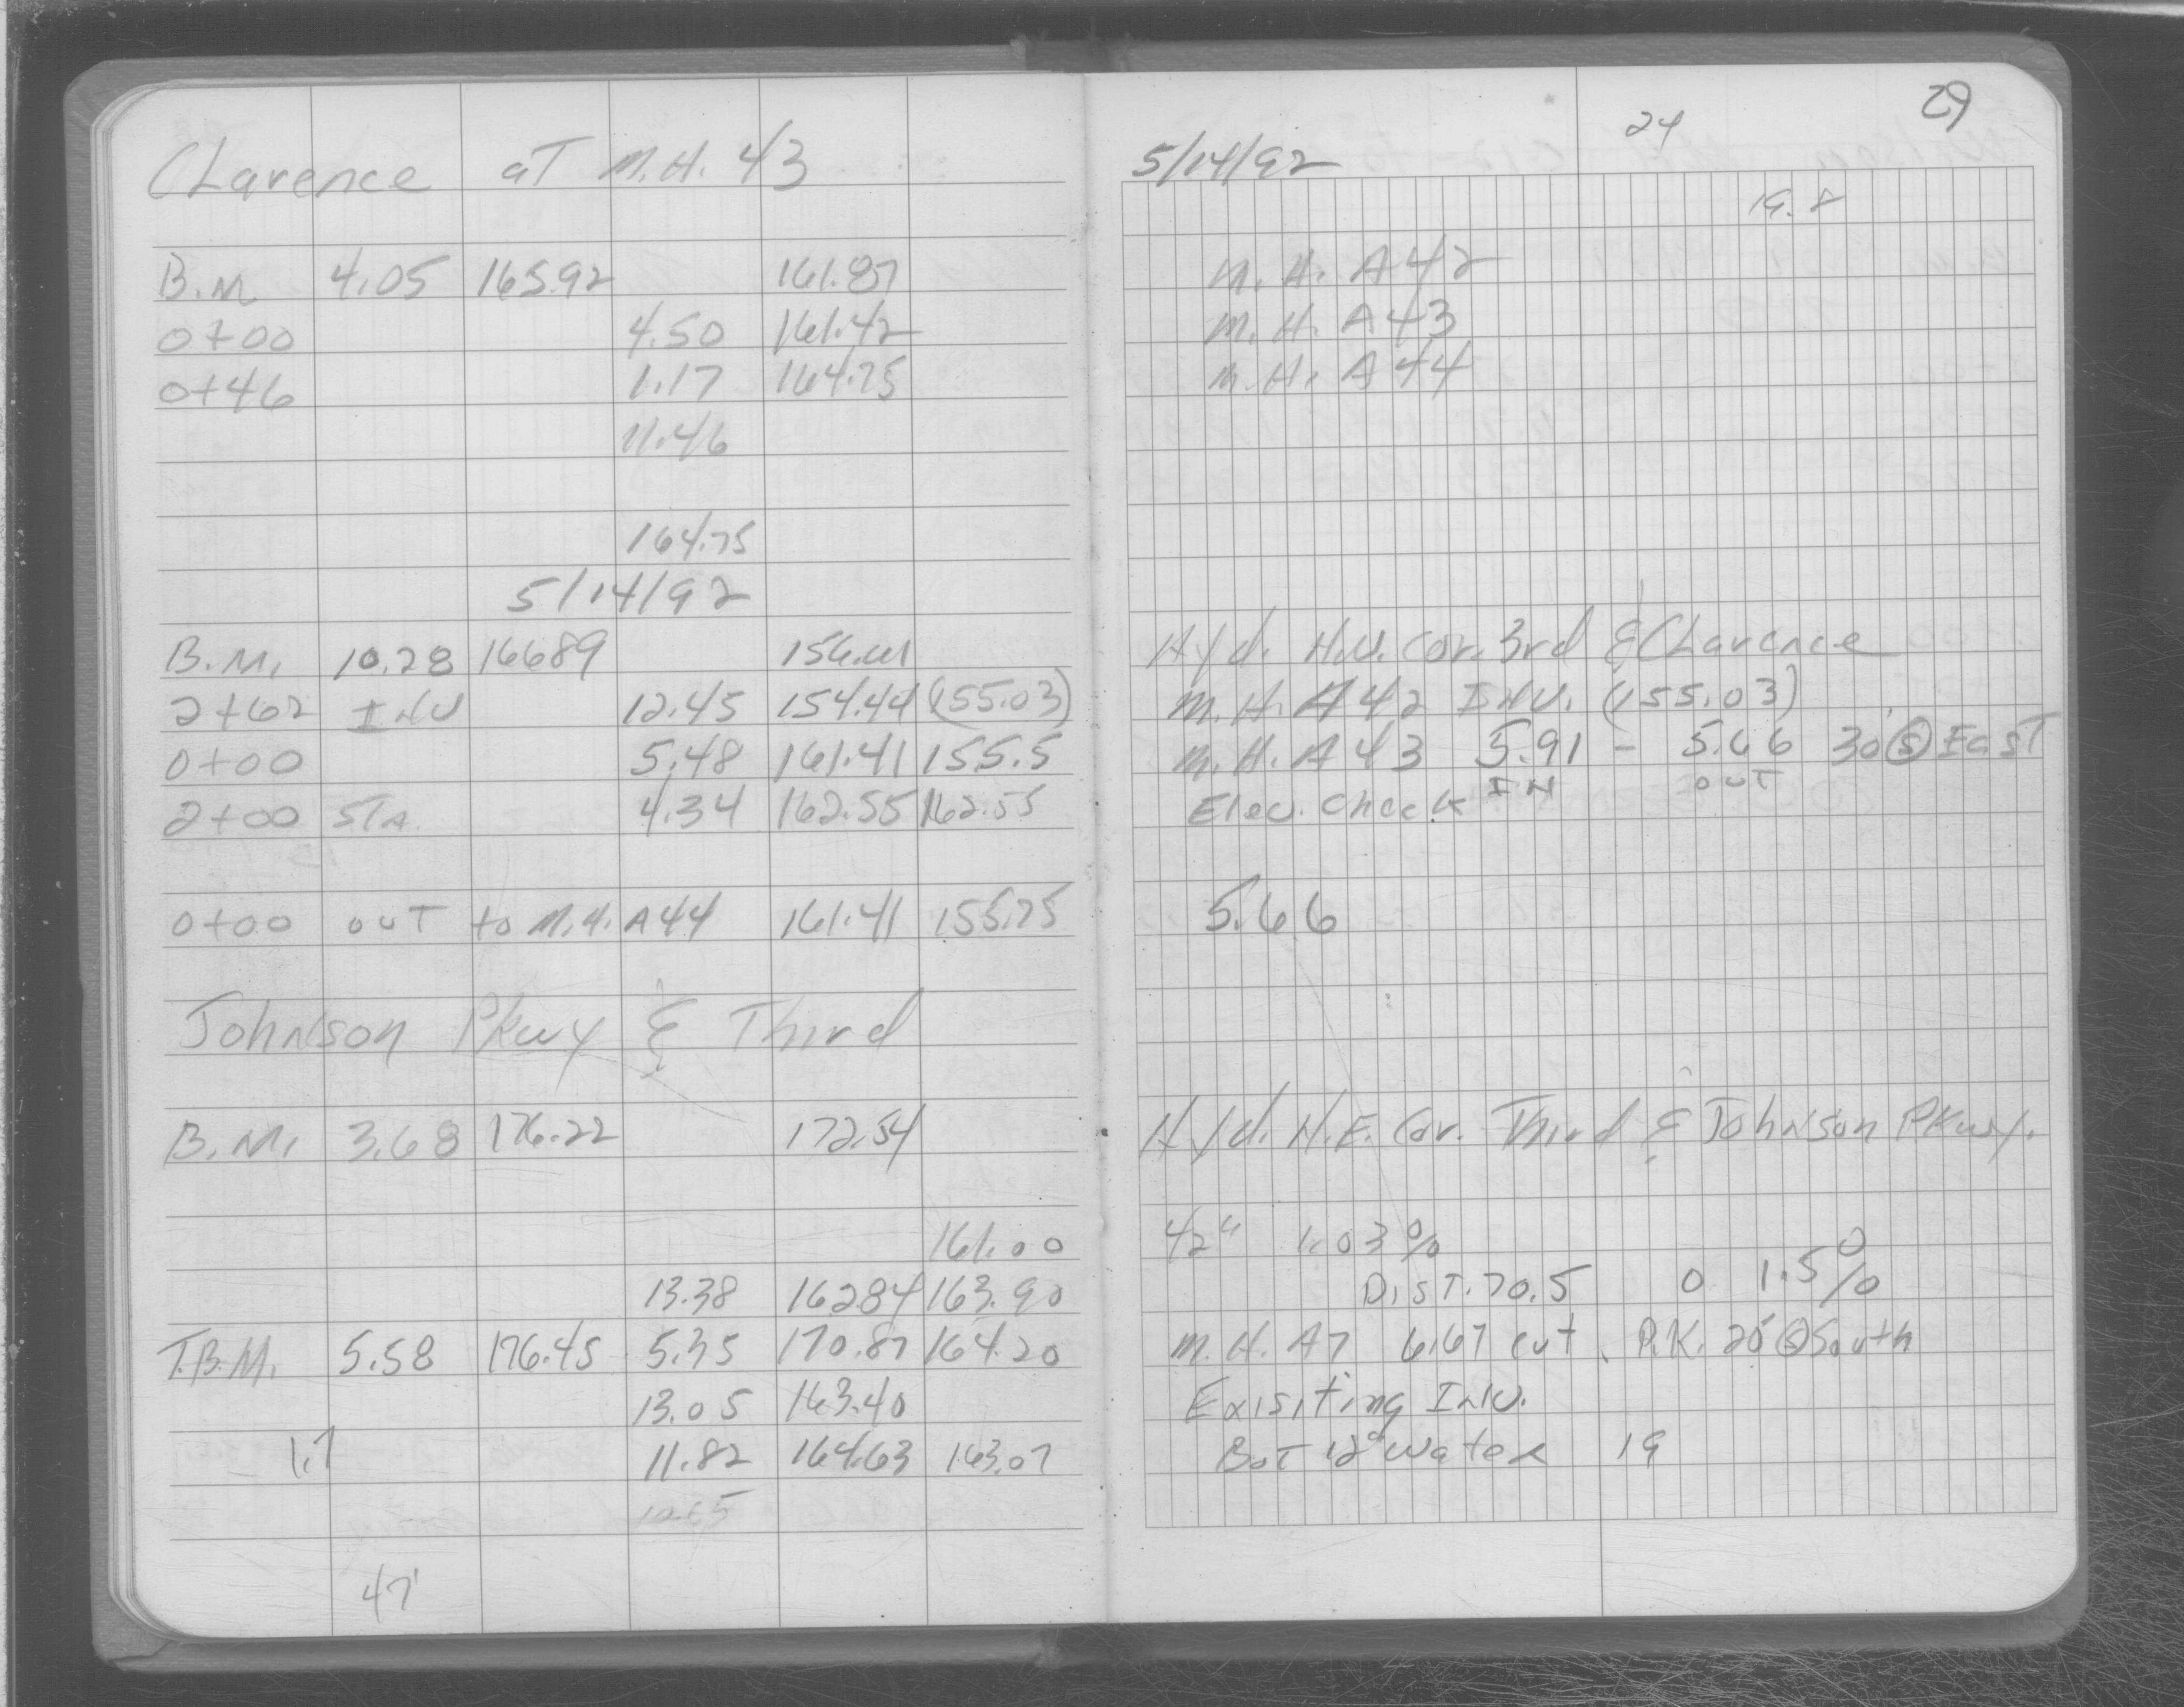 CLarence aT M.H. 43
B.M 4.05 165.92 161.87
0+00 4.50 161.42
0+46 1.17 164.75
11.46
164.75
5/14/92
B.M. 10.28 166.89 156.61
2+62 INV 12.45 154.44 (155.03)
0+00 5.48 161.41 155.5
2+00 STA. 4.34 162.55 162.55
0+00 OUT to M.H. A44 161.41 155.75
Johnson Pkwy & Third
B.M. 3.68 176.22 172.54
161.00
13.38 162.84 163.90
T.B.M. 5.58 176.45 5.35 170.87 164.20
13.05 163.40
1.7 11.82 164.63 163.07
47'
29
24
5/14/92
19.8
M.H. A42
M.H. A43
M.H. A44
Hyd. N.W. Cor. 3rd & CLarence
M.H. A42 INV. (155.03)
M.H. A43 5.91 - 5.66 30' (S) EasT
Elev. Check IN OUT
5.66
Hyd. N.E. Cor. Third & Johnson Pkwy.
42" 1.03%
DIST. 70.5 0 1.5%
M.H. A7 6.67 cut P.K. 20' (S) South
Exisiting Inv.
BoT 12" Water 19